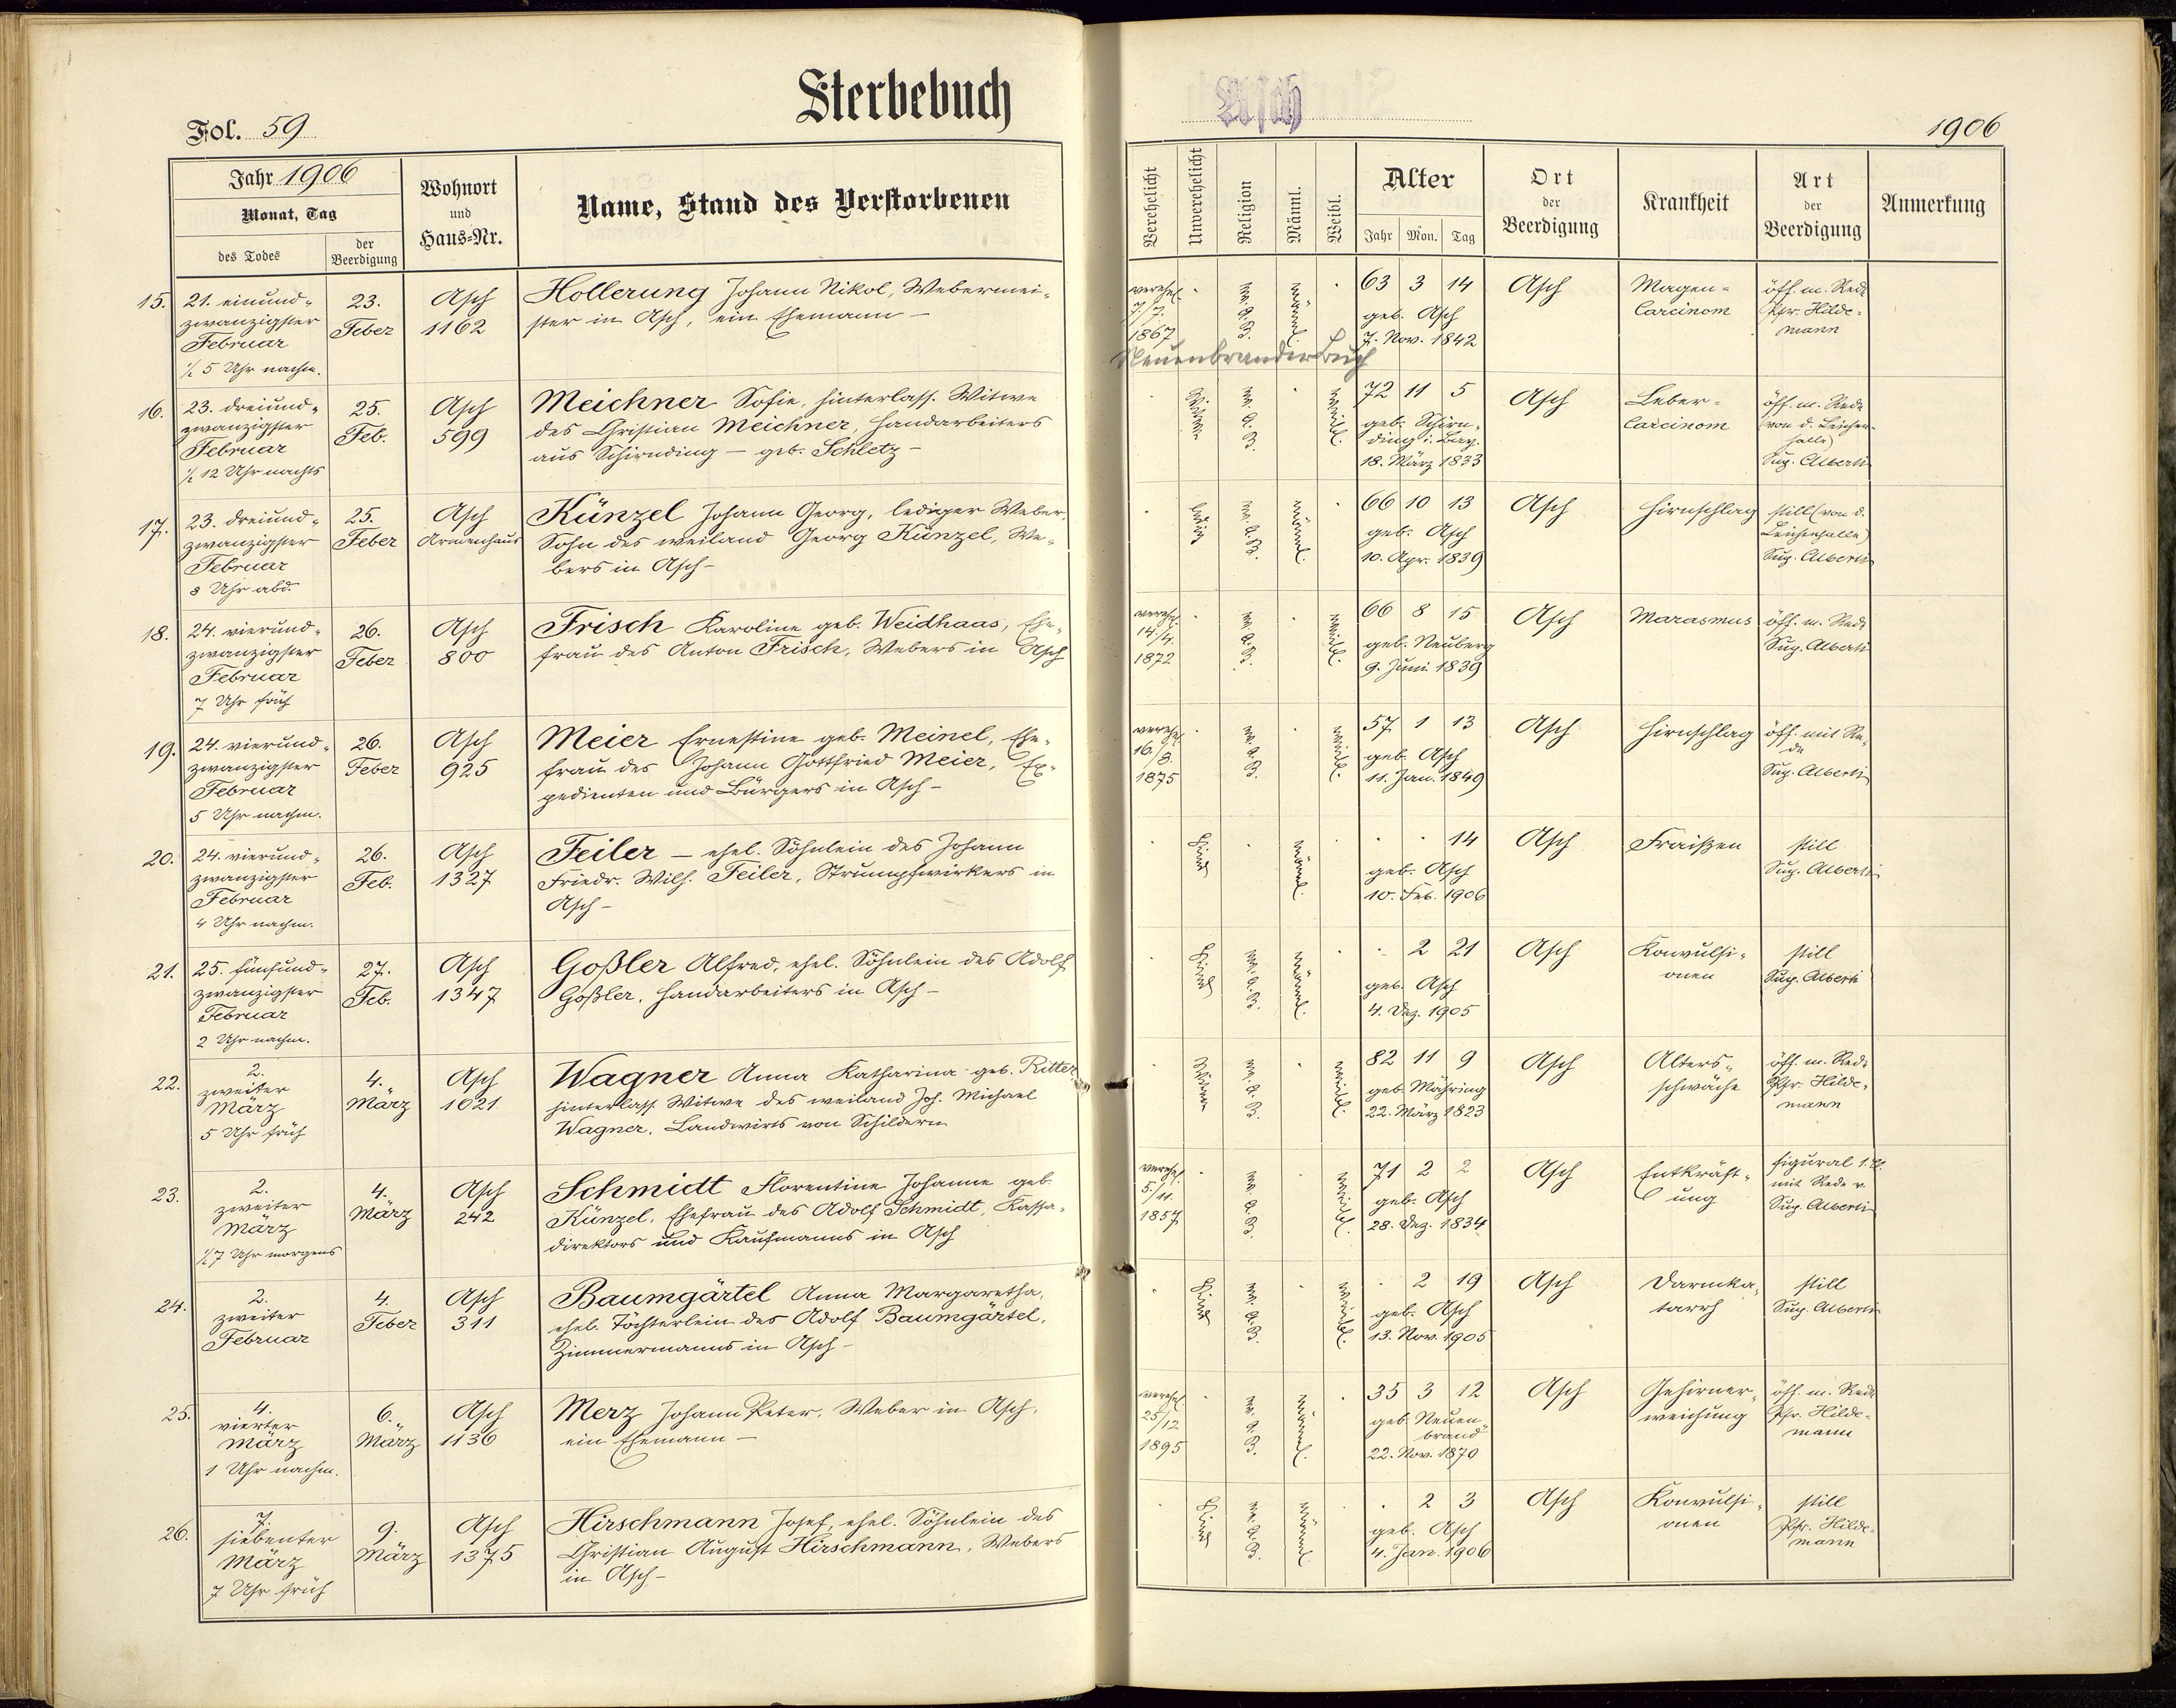 Sterbebuch
Asch
Fol. 59
1906
Jahr 1906
Monat, Tag
des Todes
der Beerdigung
Wohnort
und
Haus-Nr.
Name, Stand des Verstorbenen
Verehelicht
Unverehelicht
Religion
Männl.
Weibl.
Alter
Jahr Mon. Tag
Ort
der
Beerdigung
Krankheit
Art
der
Beerdigung
Anmerkung
15. 21. einund-
zwanzigster
Februar
½ 5 Uhr nachm.
23.
Feber
Asch
1162
Hollerung Johann Nikol, Webermei-
ster in Asch, ein Ehemann –
verehel.
7/7.
1867
ev. A. B.
männl.
63 3 14
geb. Asch
7. Nov. 1842
Asch
Magen-
Carcinom
öff. m. Rede
Pfr. Hilde-
mann
Neuenbrander Buch
16. 23. dreiund-
zwanzigster
Februar
½ 12 Uhr nachts
25.
Feb.
Asch
599
Meichner Sofie, hinterlass. Witwe
des Christian Meichner, Handarbeiters
aus Schirnding – geb. Schletz –
Witwe
ev. A. B.
weibl.
72 11 5
geb. Schirn-
ding i. Bay.
18. März 1833
Asch
Leber-
Carcinom
öff. m. Rede
(von d. Leichen-
halle)
Sup. Alberti
17. 23. dreiund-
zwanzigster
Februar
8 Uhr abd.
25.
Feber
Asch
Armenhaus
Künzel Johann Georg, lediger Weber,
Sohn des weiland Georg Künzel, We-
bers in Asch –
ledig
ev. A. B.
männl.
66 10 13
geb. Asch
10. Apr. 1839
Asch
Hirnschlag
still (von d.
Leichenhalle)
Sup. Alberti
18. 24. vierund-
zwanzigster
Februar
7 Uhr früh
26.
Feber
Asch
800
Frisch Karoline geb. Weidhaas, Ehe-
frau des Anton Frisch, Webers in Asch
verehel.
14./4.
1872
ev. A. B.
weibl.
66 8 15
geb. Neuberg
9. Juni 1839
Asch
Marasmus
öff. m. Rede
Sup. Alberti
19. 24. vierund-
zwanzigster
Februar
5 Uhr nachm.
26.
Feber
Asch
925
Meier Ernestine geb. Meinel, Ehe-
frau des Johann Gottfried Meier, Ex-
pedienten und Bürgers in Asch –
verehel.
16./8.
1875
ev. A. B.
weibl.
57 1 13
geb. Asch
11. Jan. 1849
Asch
Hirnschlag
öff. mit Re-
de
Sup. Alberti
20. 24. vierund-
zwanzigster
Februar
4 Uhr nachm.
26.
Feb.
Asch
1327
Feiler – ehel. Söhnlein des Johann
Friedr. Wilh. Feiler, Strumpfwirkers in
Asch –
Kind
männl.
14
geb. Asch
10. Feb. 1906
Asch
Fraißen
still
Sup. Alberti
21. 25. fünfund-
zwanzigster
Februar
2 Uhr nachm.
27.
Feb.
Asch
1347
Goßler Alfred, ehel. Söhnlein des Adolf
Goßler, Handarbeiters in Asch –
Kind
ev. A. B.
männl.
2 21
geb. Asch
4. Dez. 1905
Asch
Konvulsi-
onen
still
Sup. Alberti
22. 2.
zweiter
März
5 Uhr früh
4.
März
Asch
1021
Wagner Anna Katharina geb. Ritter
hinterlass. Witwe des weiland Joh. Michael
Wagner, Landwirts von Schildern
Witwe
ev. A. B.
weibl.
82 11 9
geb. Mähring
22. März 1823
Asch
Alters-
schwäche
öff. m. Rede
Pfr. Hilde-
mann
23. 2.
zweiter
März
½7 Uhr morgens
4.
März
Asch
242
Schmidt Florentine Johanne geb.
Künzel, Ehefrau des Adolf Schmidt, Kassa-
direktors und Kaufmanns in Asch
verehel.
5./11.
1857
ev. A. B.
weibl.
71 2 2
geb. Asch
28. Dez. 1834
Asch
Entkräft-
ung
figural 1. Cl.
mit Rede v.
Sup. Alberti
24. 2.
zweiter
Februar
4.
Feber
Asch
311
Baumgärtel Anna Margaretha,
ehel. Töchterlein des Adolf Baumgärtel,
Zimmermanns in Asch –
Kind
ev. A. B.
weibl.
2 19
geb. Asch
13. Nov. 1905
Asch
Darmka-
tarrh
still
Sup. Alberti
25. 4.
vierter
März
1 Uhr nachm.
6.
März
Asch
1136
Merz Johann Peter, Weber in Asch,
ein Ehemann –
verehel.
25/12
1895
ev. A. B.
männl.
35 3 12
geb. Neuen-
brand
22. Nov. 1870
Asch
Gehirner-
weichung
öff. m. Rede
Pfr. Hilde-
mann
26. 7.
siebenter
März
7 Uhr früh
9.
März
Asch
1375
Hirschmann Josef, ehel. Söhnlein des
Christian August Hirschmann, Webers
in Asch –
Kind
ev. A. B.
männl.
2 3
geb. Asch
4. Jan. 1906
Asch
Konvulsi-
onen
still
Pfr. Hilde-
mann